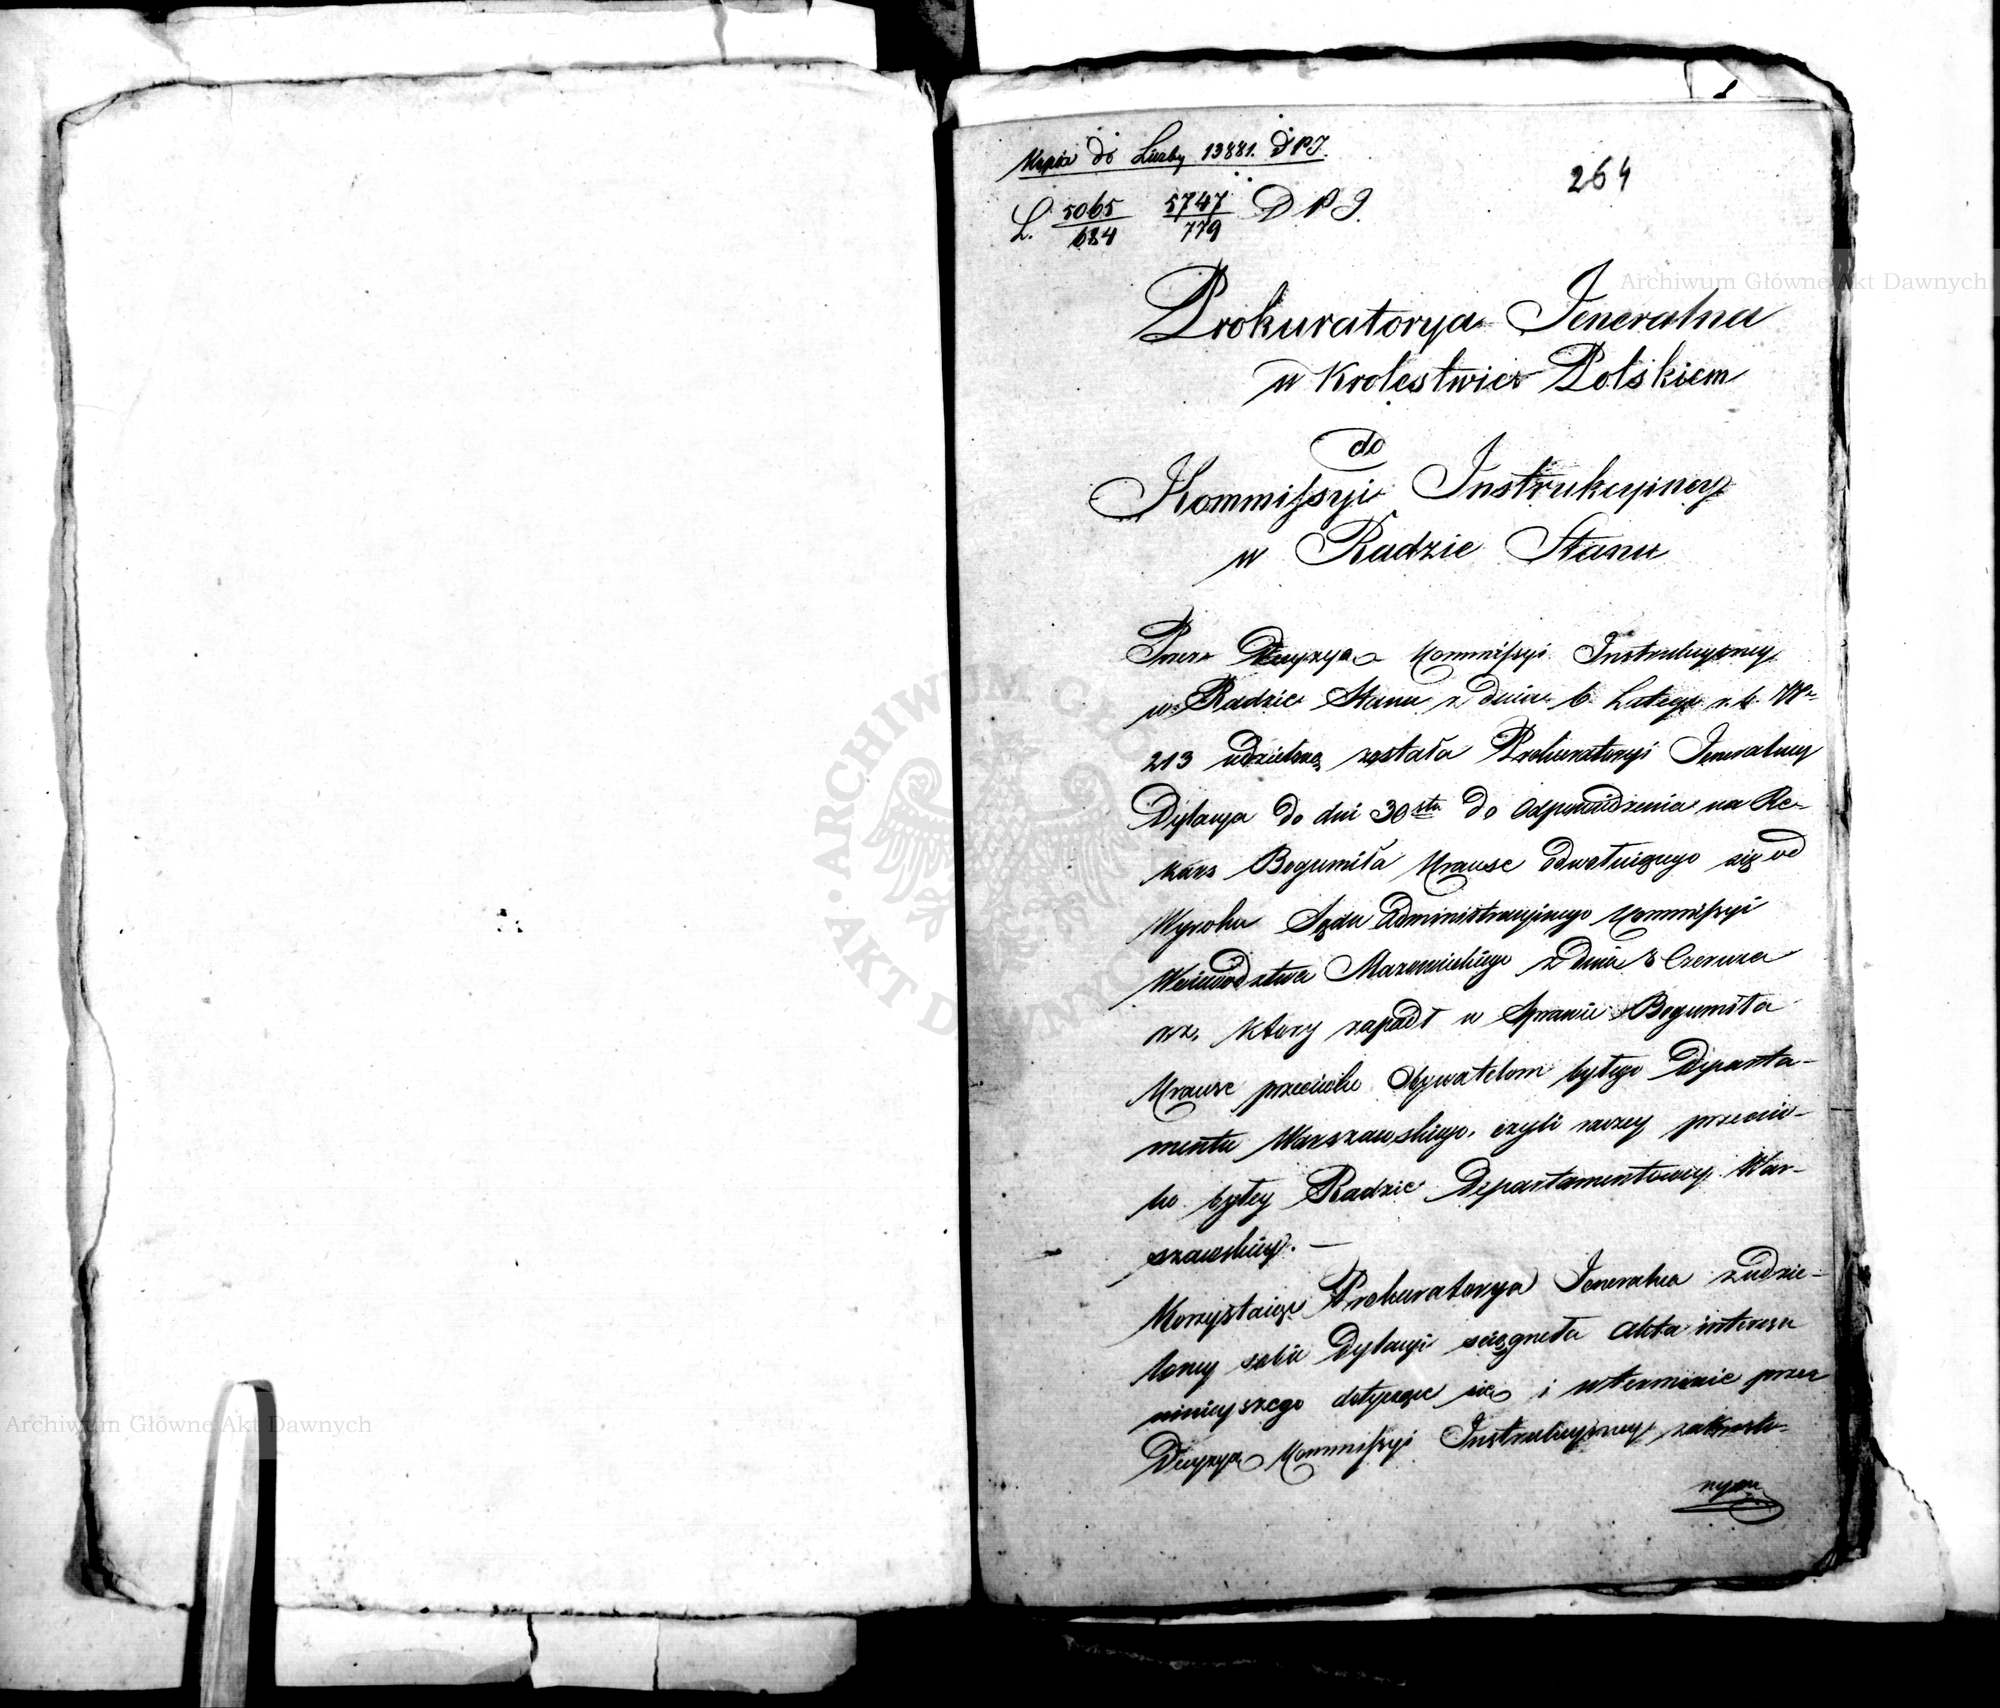 1
Kopia do Liczby 13881. DPJ.
264
L. 5065/684 5747/779 D P J.
Prokuratorya Jeneralna
w Krolestwie Polskiem
do
Kommissyi Instrukcyiney
w Radzie Stanu
Przez Decyzyą Kommissyi Instrukcyiney
w Radzie Stanu z dnia 6 Lutego r. b. Nr
213 udzieloną została Prokuratoryi Jeneralney
Dylacya do dni 30stu do odpowiedzenia na Re-
kurs Bogumiła Krause odwołuiącego się od
Wyroku Sądu Administracyinego Kommissyi
Woiewodztwa Mazowieckiego z dnia 8 Czerwca
który zapadł w Sprawie Bogumiła
Krause przeciwko Obywatelom byłego Departa-
mentu Warszawskiego, czyli raczey przeciw-
ko byłey Radzie Departamentowey War-
szawskiey. —
Korzystaiąc Prokuratorya Jeneralna z udzie-
loney sobie Dylacyi ściągnęła Akta interesu
ninieyszego dotyczące się i w terminie przez
Decyzyą Kommissyi Instrukcyiney zakreslo-
nym
Archiwum Główne Akt Dawnych
Archiwum Główne Akt Dawnych
ARCHIWUM GŁÓWNE AKT DAWNYCH